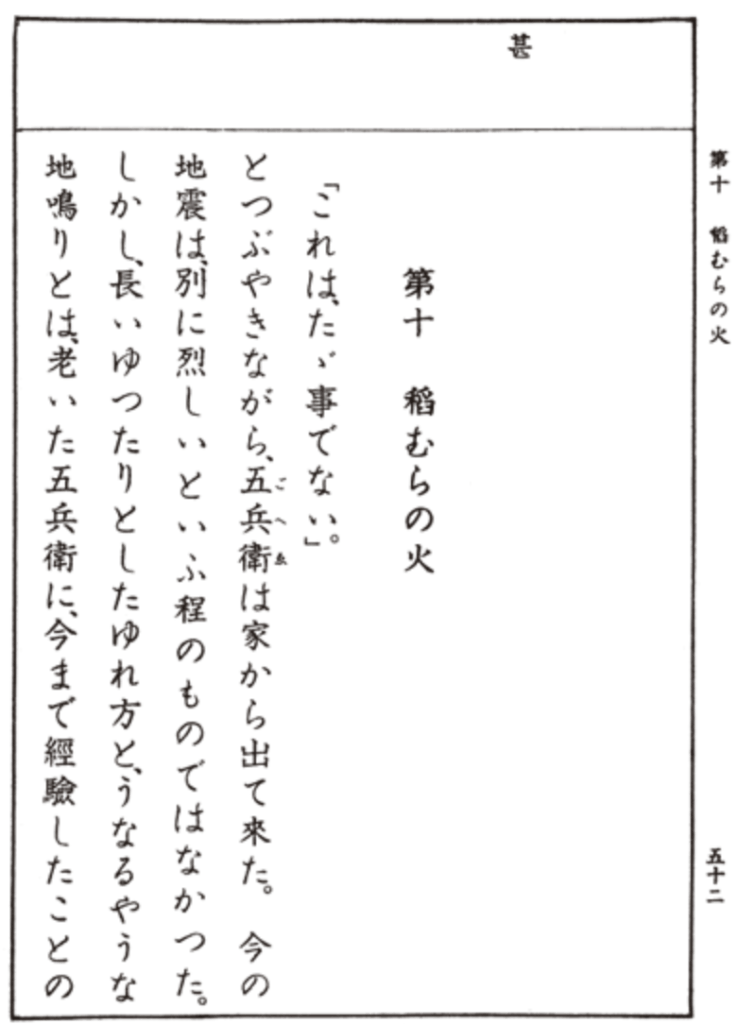 第十 稻むらの火
五十二
甚
第十 稻むらの火
「これは、たゞ事でない。」
とつぶやきながら、五兵衛は家から出て來た。 今の
ごへゑ
地震は、別に烈しいといふ程のものではなかつた。
しかし、長いゆつたりとしたゆれ方と、うなるやうな
地鳴りとは、老いた五兵衛に、今まで經驗したことの